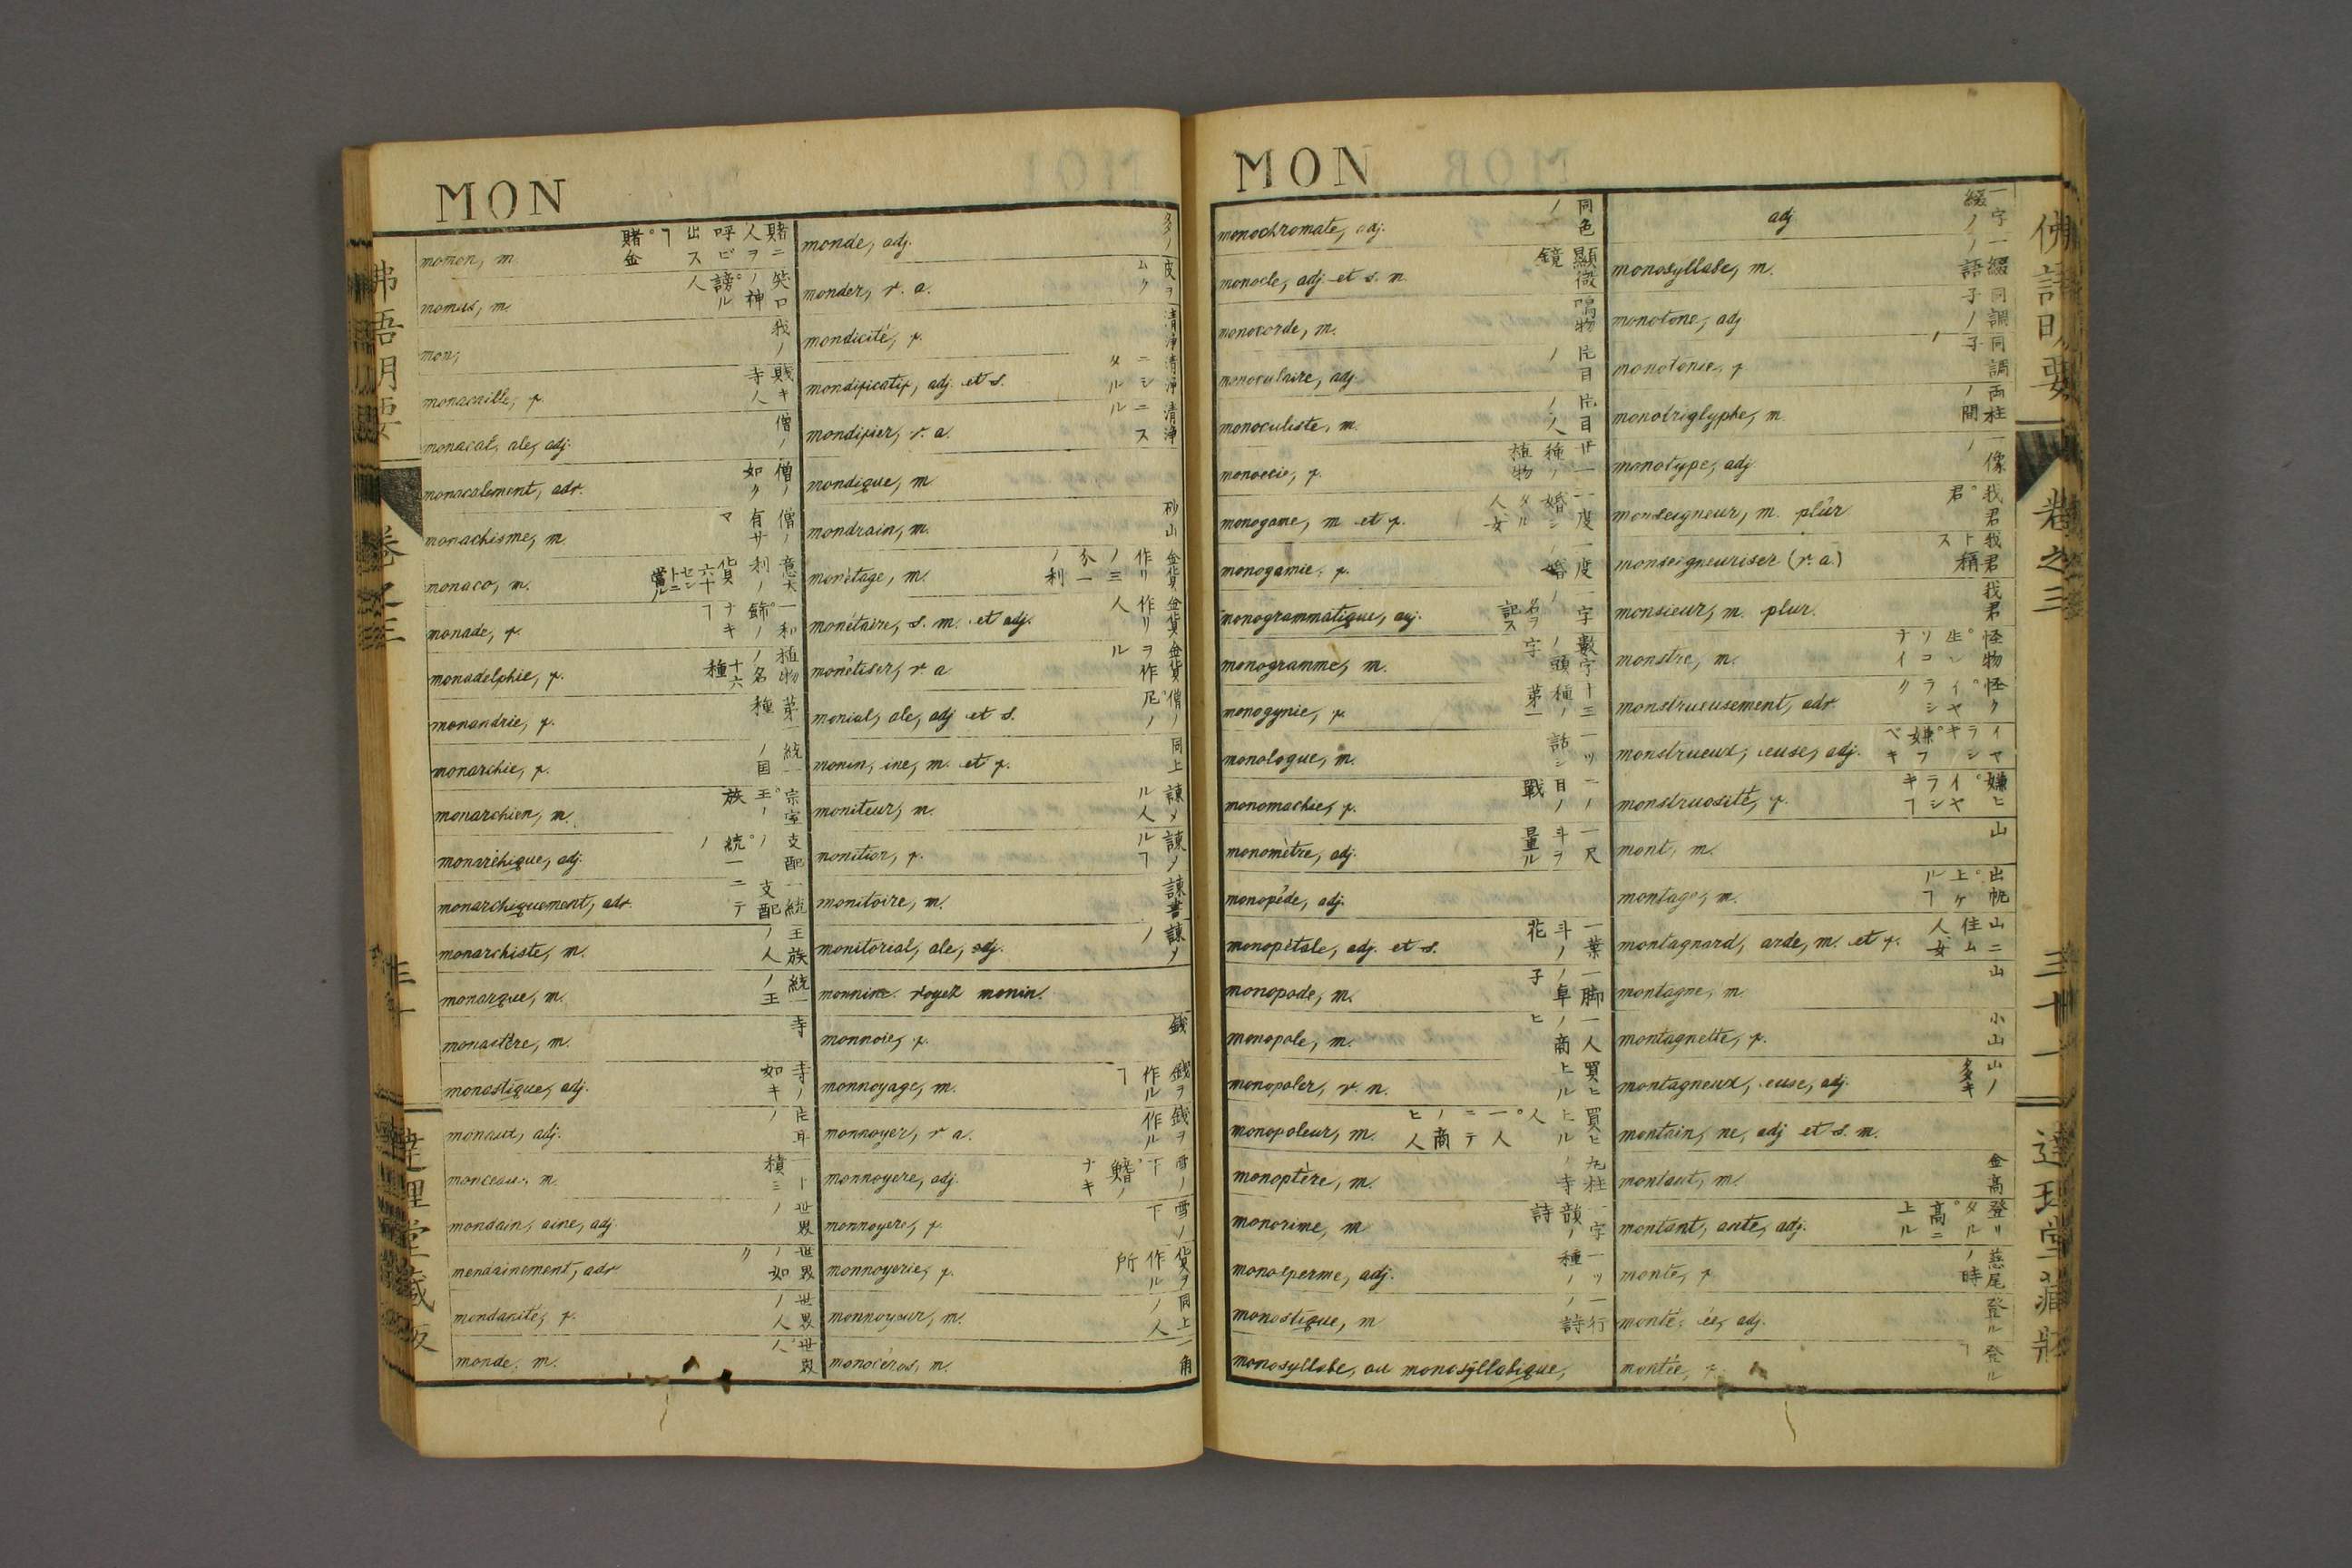 MON
momon, m. 賭ニ人ヲ呼ビ出スヿ。賭金
momus, m. 笑口ノ神。謗ル人
mon, 我ノ
monacaille, f. 賎キ寺人
monacal, ale, adj. 僧ノ
monacalement, adv. 僧ノ如ク
monachisme, m. 僧ノ有サマ
monaco, m.
monade, f.
monadelphie, f. 植物ノ名十六種
monandrie, f. 第一種
monarchie, f. 統一ノ国
monarchien, m. 宗室ノ王。族
monarchique, adj. 支配ノ。統一ノ
monarchiquement, adv. 一統支配ニテ
monarchiste, m. 王族ノ人
monarque, m. 統一ノ王
monastère, m. 寺
monastique, adj. 寺ノ如キ
monaut, adj. 片耳ノ
monceau, m. 一ト積ミ
mondain, aine, adj. 世界ノ
mondainement, adv. 世界ノ如ク
mondanité, f. 世界ノ人
monde, m. 世界。人
monde, adj. 多ノ
monder, v. a. 皮ヲムク
mondicité, f. 清浄
mondificatif, adj. et s. 清浄ニシタル
mondifier, v. a. 清浄ニスル
mondique, m.
mondrain, m. 砂山
monétage, m. 金貨作リノ三分一ノ利
monétaire, s. m. et adj. 金貨作リ人
monétiser, v. a 金貨ヲ作ル
monial, ale, adj et s. 僧ノ。尼ノ
monin, ine, m. et f. 同上
moniteur, m. 諌メル人
monition, f. 諌メルヿ
monitoire, m. 諌書
monitorial, ale, adj. 諌ノ
monnine. voyez monin.
monnoie, f. 銭
monnoyage, m. 銭ヲ作ルヿ
monnoyer, v a. 銭ヲ作ル
monnoyere, adj.
monnoyere, f. 雪ノ下
monnoyerie, f. 貨ヲ作ル所
monnoyeur, m. 同上ノ人
monocéros, m. 一角
MON
monochromate, adj. 同色ノ
monocle, adj. et s. m. 顕微鏡
monocorde, m. 鳴物
monoculaire, adj. 片目ノ
monoculiste, m. 片目ノ人
monoecie, f. 廿一種ノ植物
monogame, m et f. 一度婚シタル人女
monogamie, f. 一度ノ婚
monogrammatique, adj. 一字ノ名ヲ記ス
monogramme, m. 數字ノ頭字
monogynie, f. 十三種ノ第一
monologue, m. 一ツ話シ
monomachie, f. 一ノ目ノ戰
monomètre, adj. 一尺斗ヲ量ル
monopède, adj.
monopétale, adj. et s. 一葉斗ノ花
monopode, m. 一脚ノ卓子
monopole, m. 一人ノ商ヒ
monopoler, v. n. 買ヒヒル
monopoleur, m.
monoptère, m. 九柱ノ寺
monorime, m 一字韻ノ詩
monosperme, adj. 一ツ種ノ
monostique, m 一行ノ詩
monosyllabe, ou monosyllabique,
adj 一字綴ノ
monosyllabe, m. 一綴ノ語
monotone, adj 同調子ノ
monotonie, f 同調子
monotriglyphe, m. 両柱ノ間
monotype, adj 一像ノ
monseigneur, m. plur 我君。君
monseigneuriser (v. a.) 我君ト稱ス
monsieur, m. plur. 我君
monstre, m. 怪物。生ソコナイ
monstrueusement, adv. 怪ク。イヤラシク
monstrueux, euse, adj. イヤラシキ。嫌フベキ
monstruosité, f. 嫌ヒ。イヤラシキヿ
mont, m. 山
montage, m. 出帆。上ケルヿ
montagnard, arde, m. et f. 山ニ住ム人女
montagne, m. 山
montagnette, f. 小山
montagneux, euse, adj. 山ノ多キ
montain, ne, adj et s. m.
montant, m. 金高
montant, ante, adj. 登リタル。高ニ上ル
monte, f 慈尾ノ時
monté, ée, adj. 登ル
montée, f. 登ルヿ
佛語明要 巻之三 三十一 達理堂蔵版